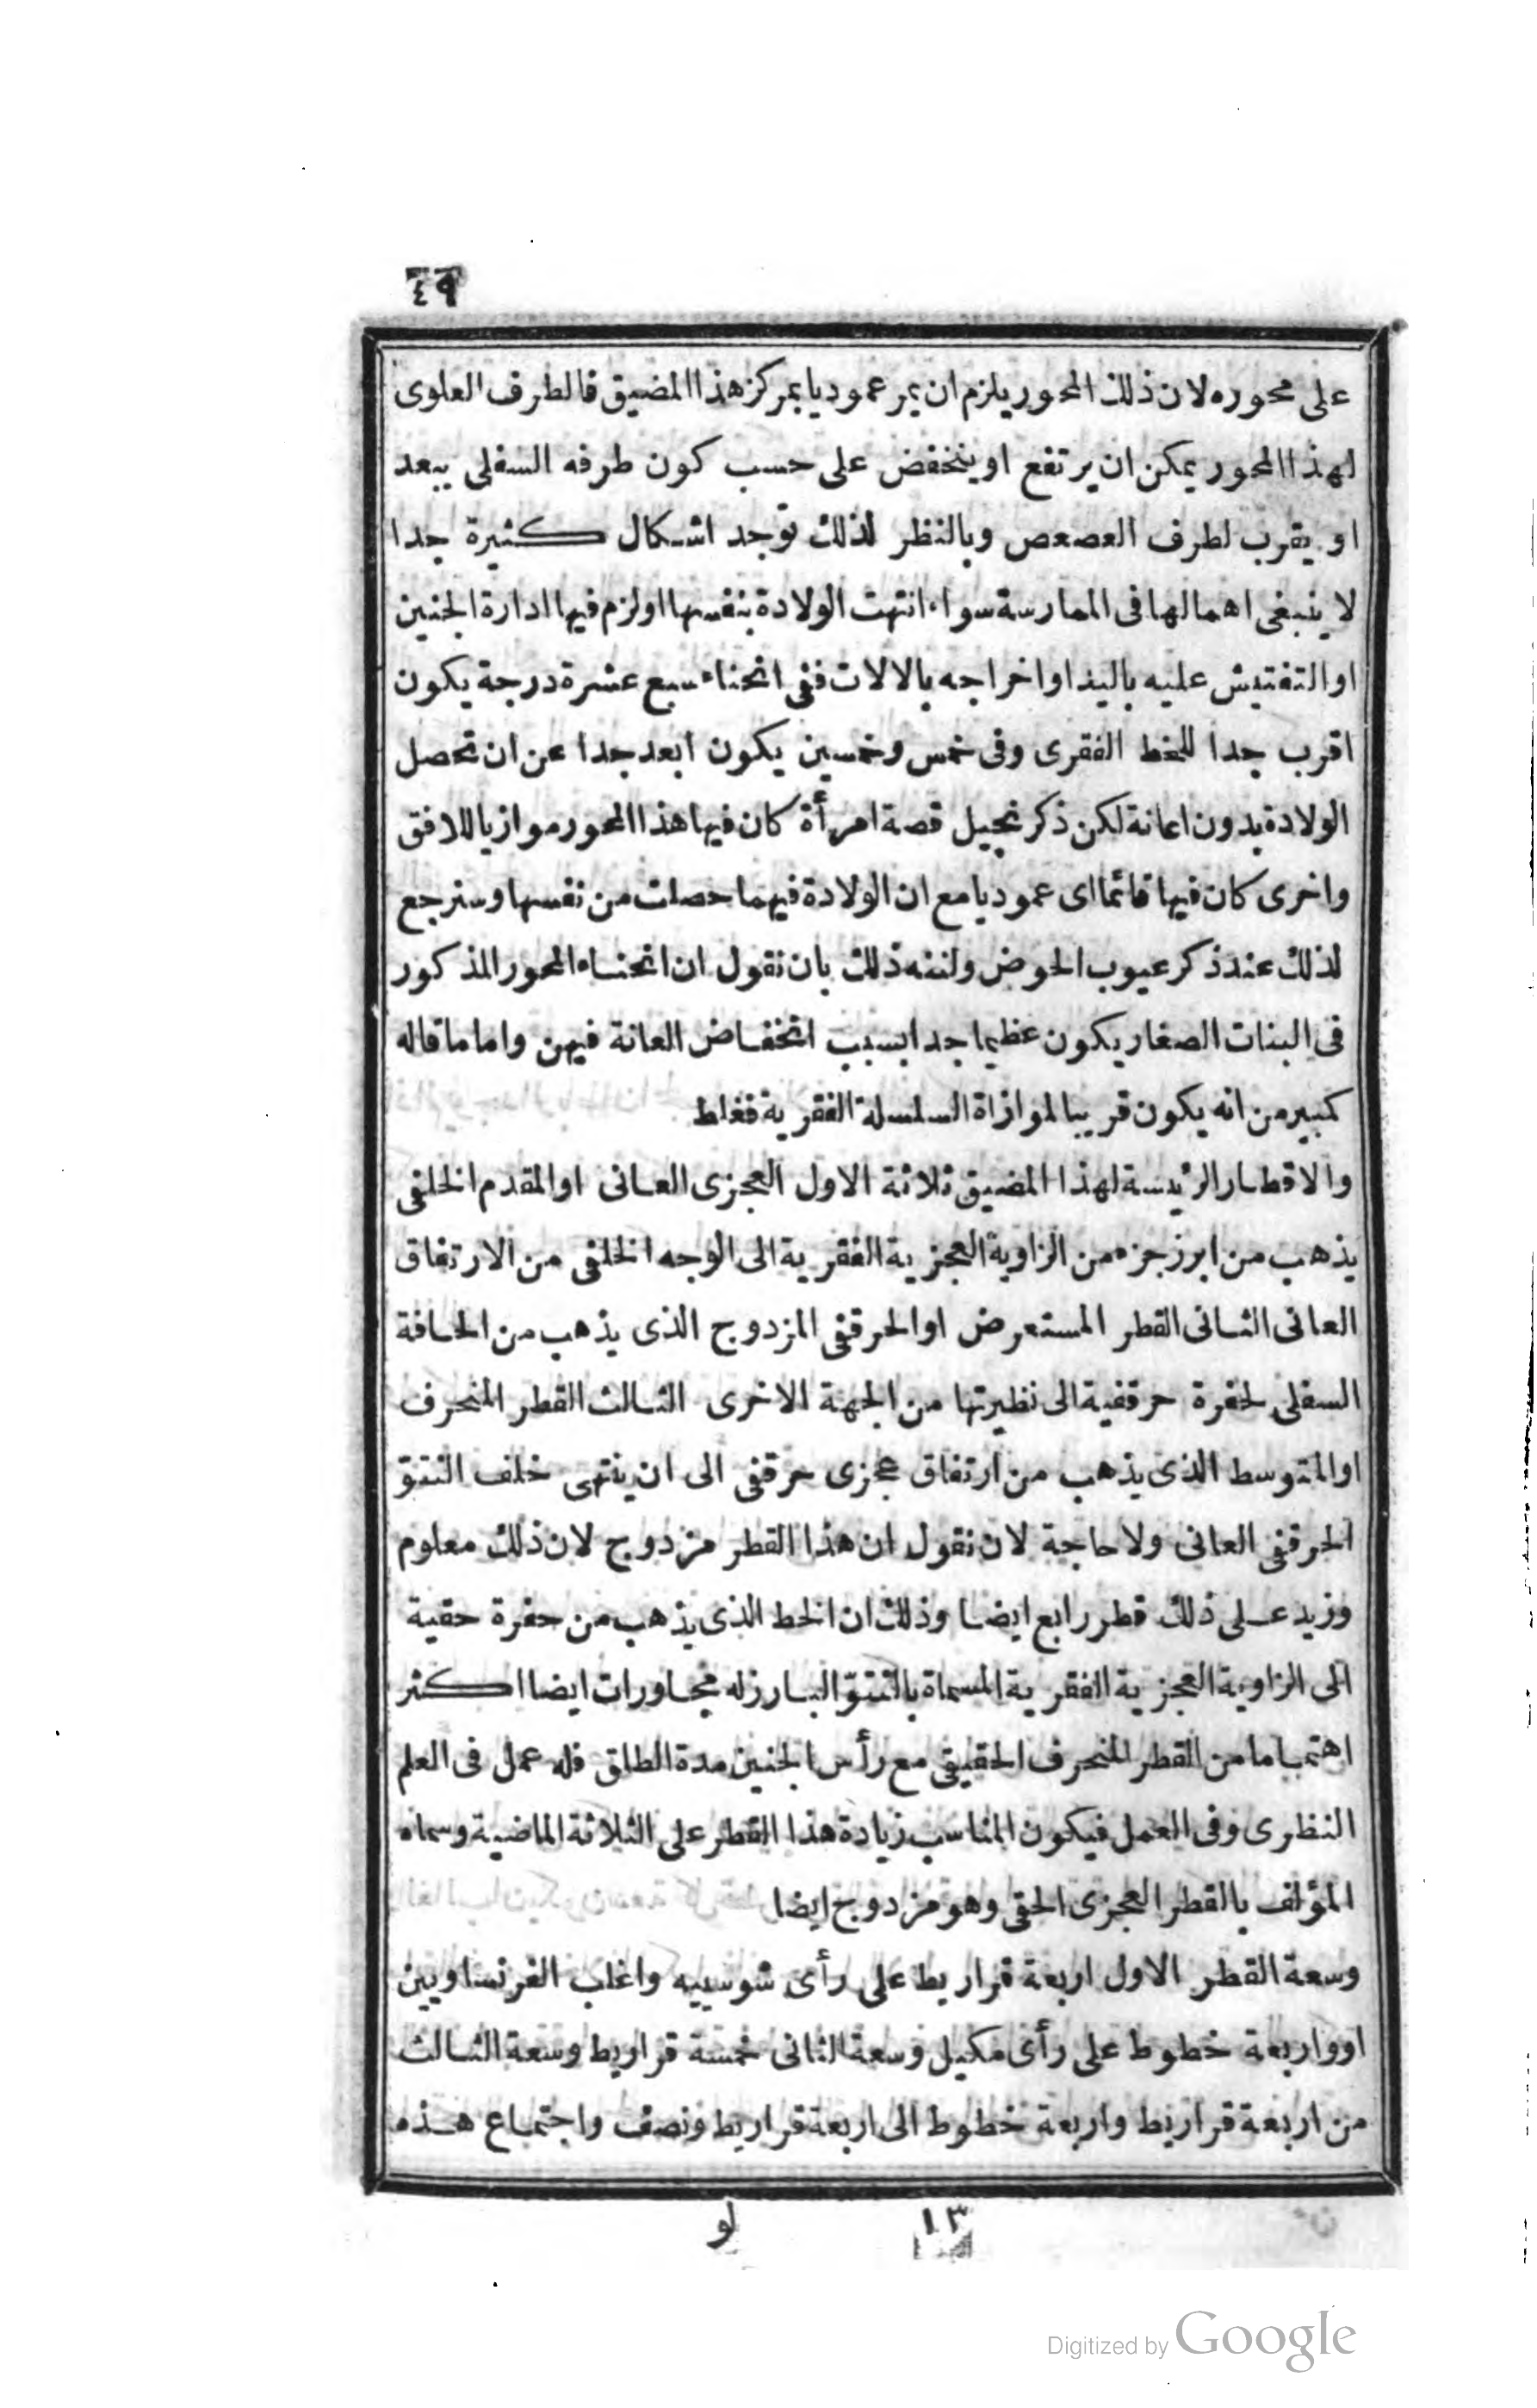 ٤٩
على محوره لان ذلك المحور يلزم ان يمر عموديا بمركز هذا المضيق فالطرف العلوى
لهذا المحور يمكن ان يرتفع او ينخفض على حسب كون طرفه السفلى يبعد
او يقرب لطرف العصعص وبالنظر لذلك توجد اشكال كثيرة جدا
لا ينبغى اهمالها فى الممارسة سواء انتهت الولادة بنفسها او لزم فيها ادارة الجنين
او التفتيش عليه باليد او اخراجه بالالات ففى انحناء سبع عشرة درجة يكون
اقرب جدا للخط الفقرى وفى خمس وخمسين يكون ابعد جدا عن ان تحصل
الولادة بدون اعانة لكن ذكر نجيل قصة امرأة كان فيها هذا المحور موازيا للافق
واخرى كان فيها قائما اى عموديا مع ان الولادة فيهما حصلت من نفسها وسنرجع
لذلك عند ذكر عيوب الحوض ولننه ذلك بان نقول ان انحناء المحور المذكور
فى البنات الصغار يكون عظيما جدا بسبب انخفاض العانة فيهن واما ما قاله
كمبير من انه يكون قريبا لموازاة السلسلة الفقرية فغلط
والاقطار الرئيسة لهذا المضيق ثلاثة الاول العجزى العانى او المقدم الخلفى
يذهب من ابرز جزء من الزاوية العجزية الفقرية الى الوجه الخلفى من الارتفاق
العانى الثانى القطر المستعرض او الحرقفى المزدوج الذى يذهب من الحافة
السفلى لحفرة حرقفية الى نظيرتها من الجهة الاخرى الثالث القطر المنحرف
او المتوسط الذى يذهب من ارتفاق عجزى حرقفى الى ان ينتهى خلف النتوّ
الحرقفى العانى ولا حاجة لان نقول ان هذا القطر مزدوج لان ذلك معلوم
وزيد على ذلك قطر رابع ايضا وذلك ان الخط الذى يذهب من حفرة حقية
الى الزاوية العجزية الفقرية المسماة بالنتوّ البارز له مجاورات ايضا اكثر
اهتماما من القطر المنحرف الحقيقى مع رأس الجنين مدة الطلق فله عمل فى العلم
النظرى وفى العمل فيكون المناسب زيادة هذا القطر على الثلاثة الماضية وسماه
المؤلف بالقطر العجزى الحقى وهو مزدوج ايضا
وسعة القطر الاول اربعة قراريط على رأى شوسييه واغلب الفرنساويين
او واربعة خطوط على رأى مكيل وسعة الثانى خمسة قراريط وسعة الثالث
من اربعة قراريط واربعة خطوط الى اربعة قراريط ونصف واجتماع هذه
١٣ لو
Digitized by Google